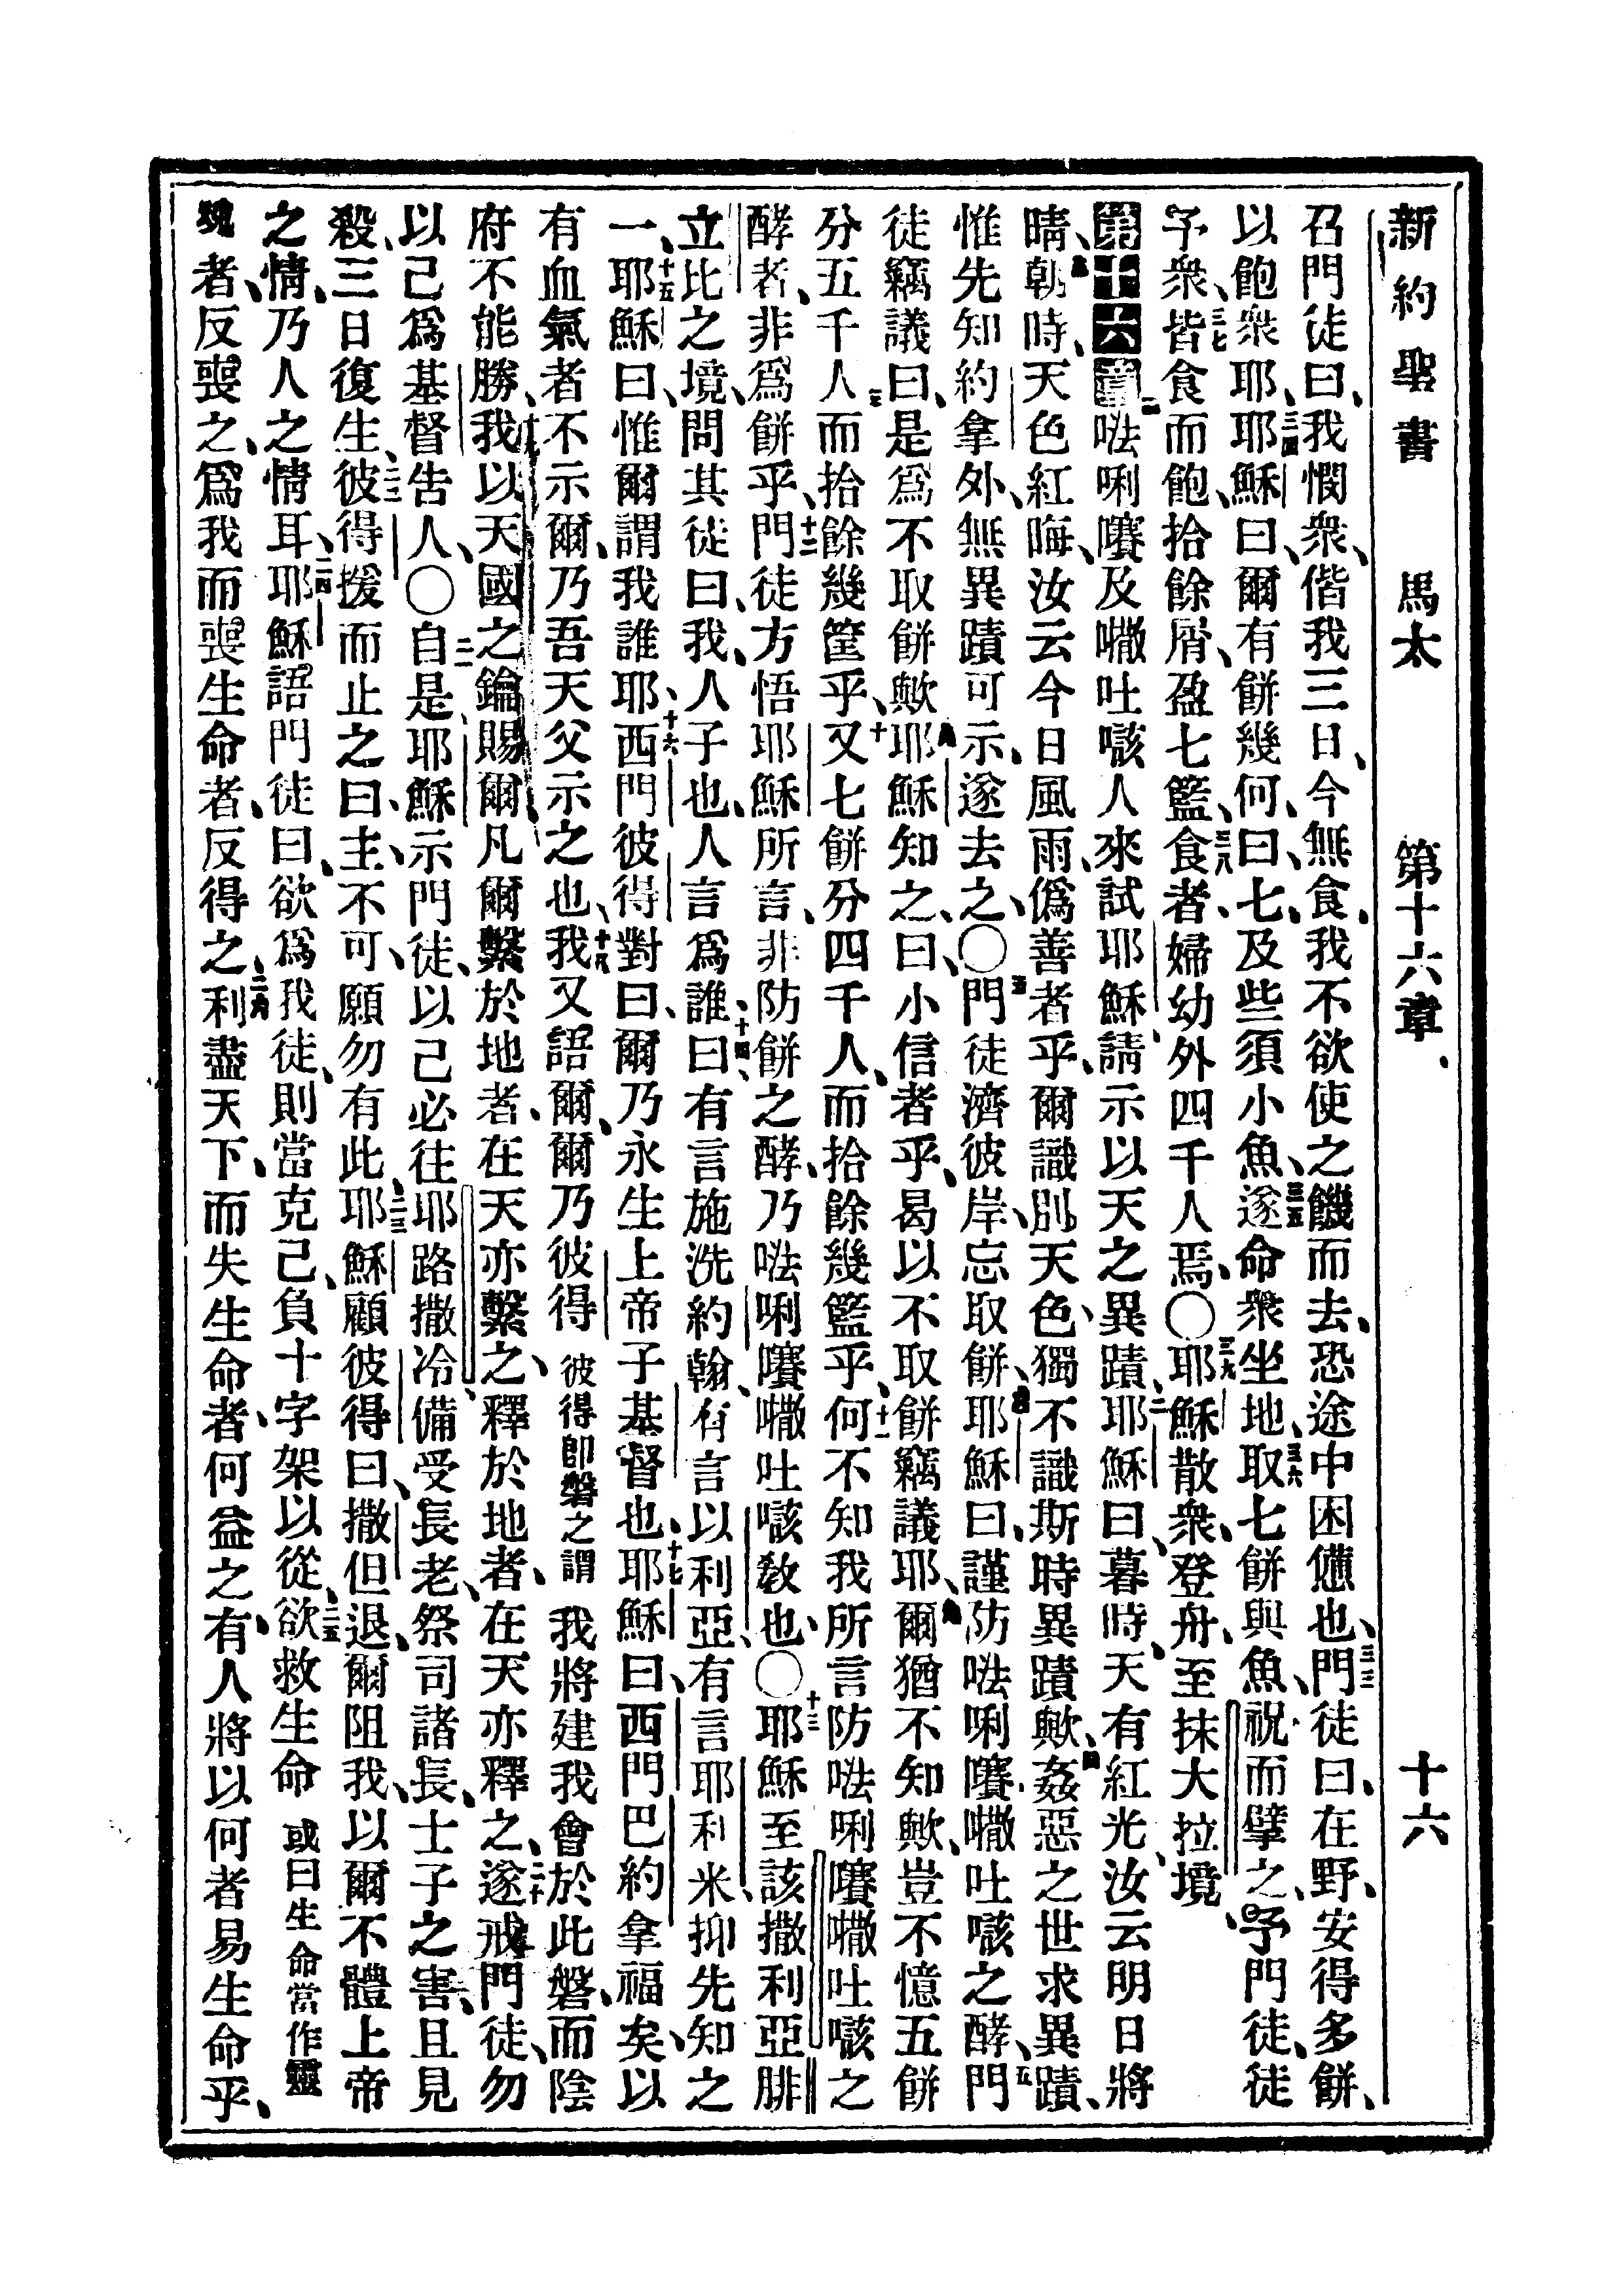 新約聖書 馬太 第十六章 十六
召門徒曰、我憫衆、偕我三日、今無食、我不欲使之饑而去、恐途中困憊也、三三門徒曰、在野、安得多餅、
以飽衆耶、三四耶穌曰、爾有餅幾何、曰、七、及些須小魚、三五遂命衆坐地、三六取七餅與魚、祝而擘之、予門徒、徒
予衆、三七皆食而飽、拾餘屑、盈七籃、三八食者、婦幼外四千人焉、〇三九耶穌散衆、登舟、至抹大拉境、
第十六章 一𠵽唎㘔及㘚吐㗒人來試耶穌、請示以天之異蹟、二耶穌曰、暮時、天有紅光、汝云明日將
晴、三朝時、天色紅晦、汝云今日風雨、僞善者乎、爾識別天色、獨不識斯時異蹟歟、四姦惡之世求異蹟、
惟先知約拿外、無異蹟可示、遂去之、〇五門徒濟彼岸、忘取餅、六耶穌曰、謹防𠵽唎㘔㘚吐㗒之酵、七門
徒竊議曰、是爲不取餅歟、八耶穌知之、曰、小信者乎、曷以不取餅竊議耶、九爾猶不知歟、豈不憶五餅
分五千人、而拾餘幾筐乎、十又七餅分四千人、而拾餘幾籃乎、十一何不知我所言防𠵽唎㘔㘚吐㗒之
酵者、非爲餅乎、十二門徒方悟耶穌所言、非防餅之酵、乃𠵽唎㘔㘚吐㗒敎也、〇十三耶穌至該撒利亞腓
立比之境、問其徒曰、我人子也、人言爲誰、十四曰、有言施洗約翰、有言以利亞、有言耶利米、抑先知之
一、十五耶穌曰、惟爾謂我誰耶、十六西門彼得對曰、爾乃永生上帝子基督也、十七耶穌曰、西門巴約拿福矣、以
有血氣者不示爾、乃吾天父示之也、十八我又語爾、爾乃彼得 彼得卽磐之謂 我將建我會於此磐、而陰
府不能勝、十九我以天國之鑰賜爾、凡爾繫於地者、在天亦繫之、釋於地者、在天亦釋之、二十遂戒門徒、勿
以己爲基督告人、〇二一自是耶穌示門徒、以己必往耶路撒冷、備受長老、祭司諸長、士子之害、且見
殺、三日復生、二二彼得援而止之曰、主、不可、願勿有此、二三耶穌顧彼得曰、撒但退、爾阻我、以爾不體上帝
之情、乃人之情耳、二四耶穌語門徒曰、欲爲我徒、則當克己、負十字架以從、二五欲救生命 或曰生命當作靈
魂 者、反喪之、爲我而喪生命者、反得之、二六利盡天下、而失生命者、何益之有、人將以何者易生命乎、